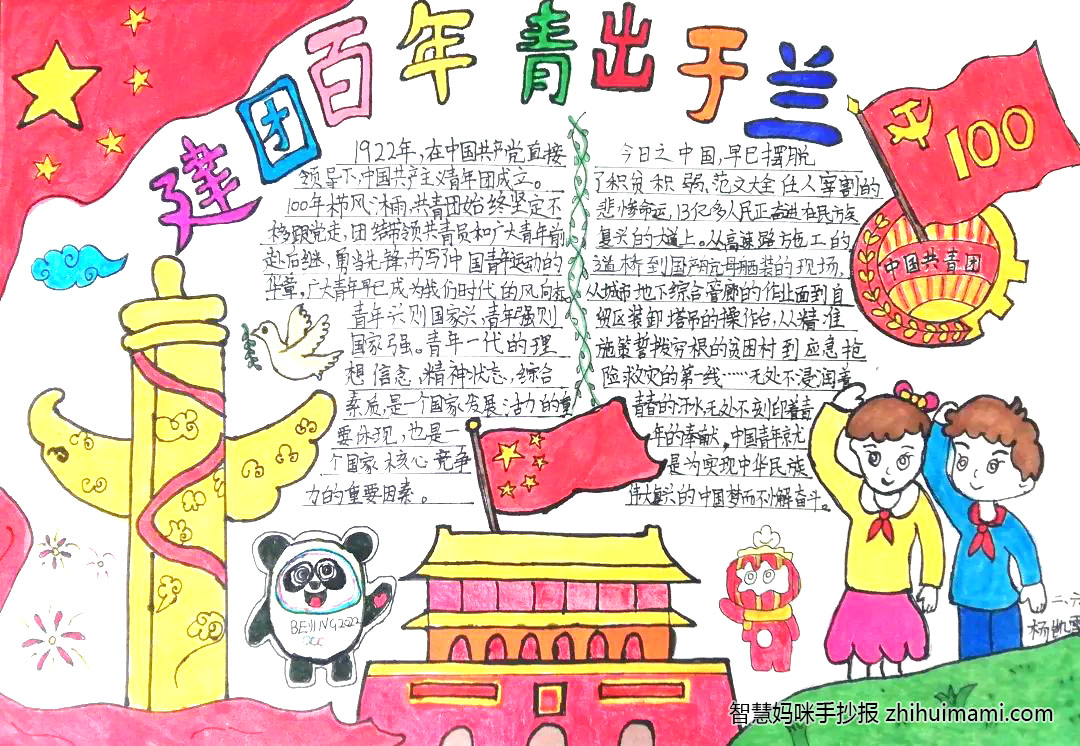 建团百年 青出于兰
1922年，在中国共产党直接
领导下，中国共产主义青年团成立。
100年栉风沐雨，共青团始终坚定不
移跟党走，团结带领共青员和广大青年前
赴后继，勇当先锋，书写了中国青年运动的
华章，广大青年早已成为我们时代的风向标。
青年兴则国家兴，青年强则
国家强。青年一代的理
想信念，精神状态，综合
素质，是一个国家发展活力的重
要体现，也是一
个国家核心竞争
力的重要因素。
今日之中国，早已摆脱
了积贫积弱，范文大全任人宰割的
悲惨命运，13亿多人民正奋进在民族
复兴的大道上。从高速路方施工的
道桥到国产航母舾装的现场，
从城市地下综合管廊的作业面到自
贸区装卸塔吊的操作台，从精准
施策誓拨穷根的贫困村到应急抢
险救灾的第一线……无处不浸润着
青春的汗水无处不刻印着青
年的奉献。中国青年
是为实现中华民族
伟大复兴的中国梦而不懈奋斗。
100
中国共青团
BEIJING2022
二、六
杨凯
智慧妈咪手抄报 zhihuimami.com